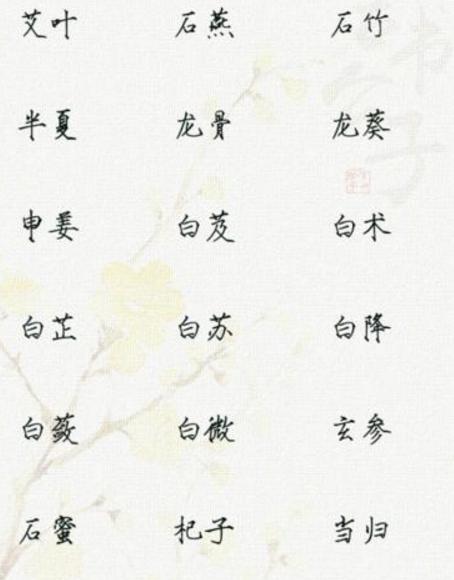 艾叶 石燕 石竹
半夏 龙骨 龙葵
申姜 白芨 白术
白芷 白苏 白降
白蔹 白微 玄参
石蜜 杞子 当归